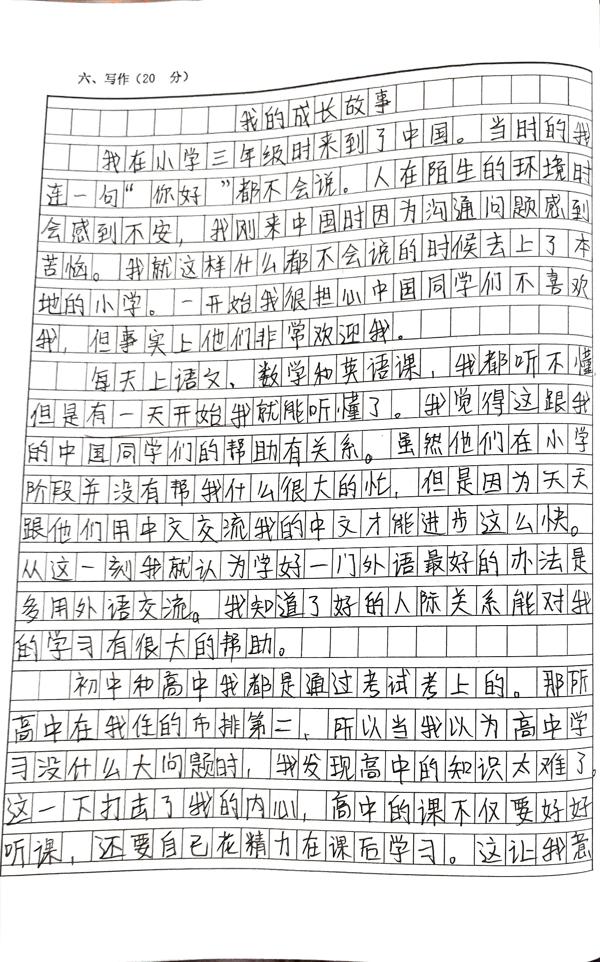 六、写作（20 分）
我的成长故事
我在小学三年级时来到了中国。当时的我
连一句“你好”都不会说。人在陌生的环境时
会感到不安，我刚来中国时因为沟通问题感到
苦恼。我就这样什么都不会说的时候去上了本
地的小学。一开始我很担心中国同学们不喜欢
我，但事实上他们非常欢迎我。
每天上语文、数学和英语课，我都听不懂
但是有一天开始我就能听懂了。我觉得这跟我
的中国同学们的帮助有关系。虽然他们在小学
阶段并没有帮我什么很大的忙，但是因为天天
跟他们用中文交流我的中文才能进步这么快。
从这一刻我就认为学好一门外语最好的办法是
多用外语交流。我知道了好的人际关系能对我
的学习有很大的帮助。
初中和高中我都是通过考试考上的。那所
高中在我住的市排第二，所以当我以为高中学
习没什么大问题时，我发现高中的知识太难了。
这一下打击了我的内心，高中的课不仅要好好
听课，还要自己花精力在课后学习。这让我意